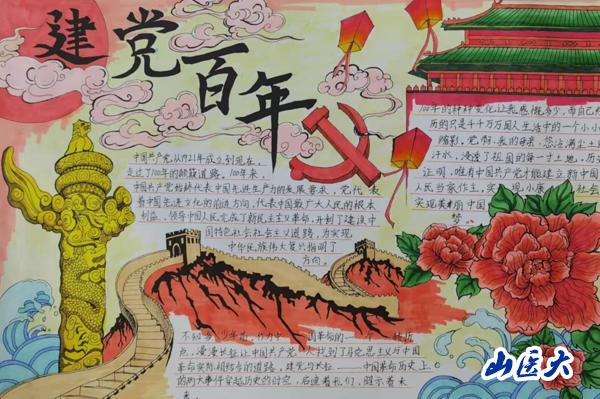 建党百年
中国共产党从1921年成立到现在，
走过了100年的颇簸道路，100年来，
中国共产党始终代表中国先进生产力的发展要求，党代表
着中国先进文化的前进方向，代表中国最广大人民的根本
利益，领导中国人民完成了新民主主义革命，开创了建设中
国特色社会主义道路，为实现
中华民族伟大复兴指明了
方向。
100年的种种变化让我感慨
历的只是千千万万国人生活中的一个小小
缩影，党啊，我的母亲，您让满尘土
汗水，浸透了祖国的每一寸土地，历
证明，唯有中国共产党才能建立新中国
人民当家作主，实现小康
实现美丽中国
梦。
不知
点，漫漫长征让中国共产党人找到了马克思主义与中国
革命实际相结合的道路，建党与长征——中国革命历史上
的两大事件穿越历史的时空，启迪着我们，昭示着未
来。
山医大